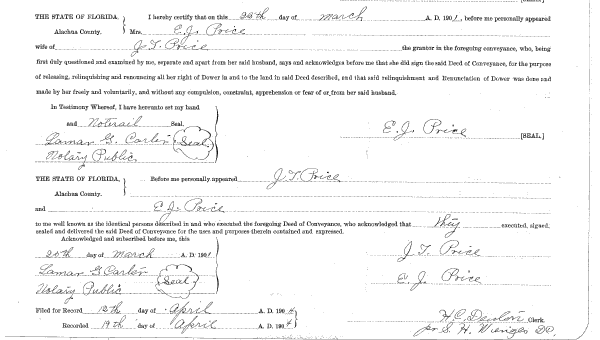 THE STATE OF FLORIDA, I hereby certify that on this 20th day of March A. D. 1901, before me personally appeared
Alachua County. Mrs. E. J. Price
wife of J. T. Price the grantor in the foregoing conveyance, who, being
first duly questioned and examined by me, separate and apart from her said husband, says and acknowledges before me that she did sign the said Deed of Conveyance, for the purpose
of releasing, relinquishing and renouncing all her right of Dower in and to the land in said Deed described, and that said relinquishment and Renunciation of Dower was done and
made by her freely and voluntarily, and without any compulsion, constraint, apprehension or fear of or from her said husband.
In Testimony Whereof, I have hereunto set my hand
and Noterail Seal.
Lamar G. Carter Seal E. J. Price [SEAL.]
Notary Public
THE STATE OF FLORIDA, Before me personally appeared J. T. Price
Alachua County.
and E. J. Price
to me well known as the identical persons described in and who executed the foregoing Deed of Conveyance, who acknowledged that they executed, signed,
sealed and delivered the said Deed of Conveyance for the uses and purposes therein contained and expressed.
Acknowledged and subscribed before me, this
20th day of March A. D. 1901 J. T. Price
Lamar G. Carter Seal E. J. Price
Notary Public
Filed for Record 12th day of April A. D. 1904 H. C. Clerk.
Recorded 19th day of April A. D. 1904 per S. H. Wienges D.C.